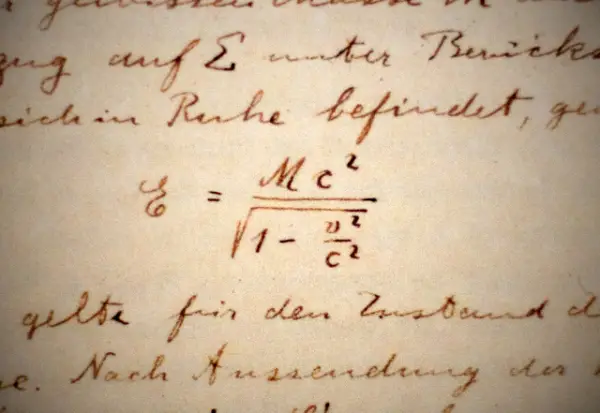 gewissen Masse M
zug auf Σ unter Berücks
sich in Ruhe befindet, ge
E = Mc² / √(1 - v²/c²)
gelte für den Zustand d
e. Nach Aussendung der